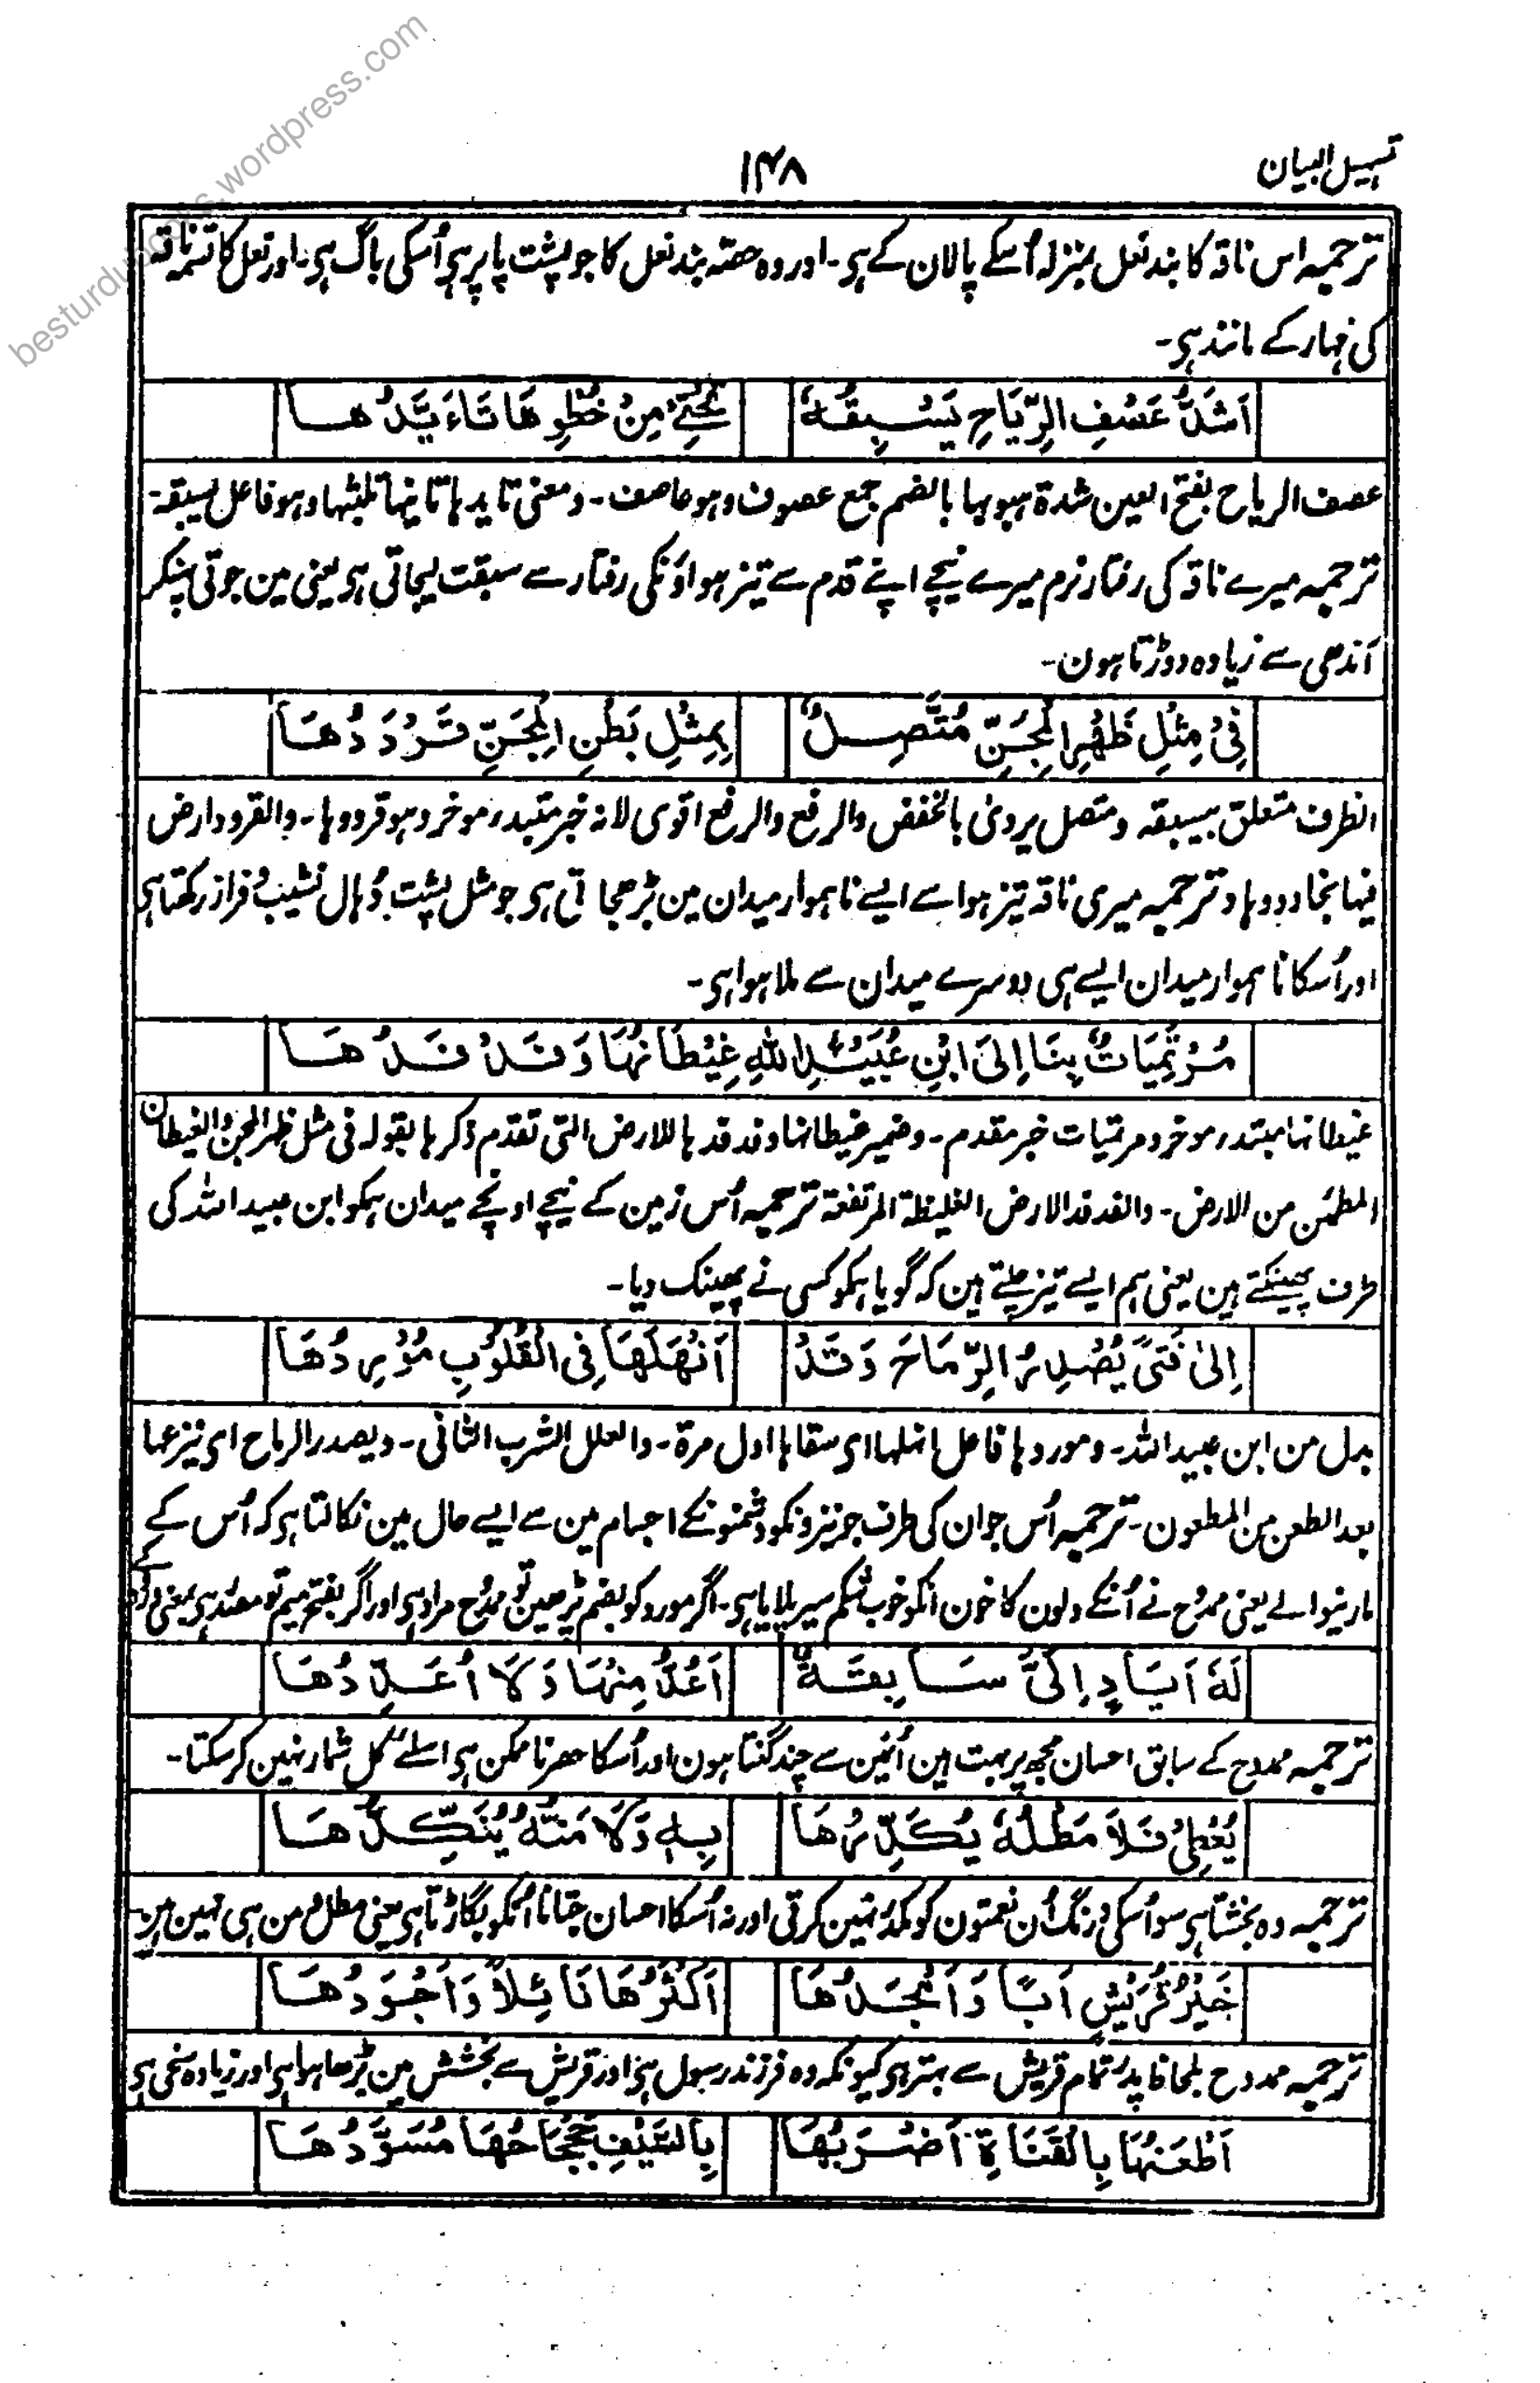 besturdubooks.wordpress.com
تسہیل البیان
۱۴۸
ترجمہ اس ناقہ کا بند نعل بمنزلہ اُسکے پالان کے ہی۔ اور وہ حصّہ بند نعل کا جو پشت پا پر ہی اُسکی باگ ہی۔ اور نعل کا تسمہ ناقہ
کی مہار کے مانند ہی۔
اَشَدُّ عَصْفِ الرِّيَاحِ يَسْبِقُهٗ تَحْتِيْ مِنْ خَطْوِهَا تَاءَيُّدُهَا
عصف الریاح بفتح العین شدۃ ہبوبہا بالضم جمع عصوف وہو عاصف۔ ومعنی تایدہا تانیہا تلبثہا وہو فاعل یسبقہ۔
ترجمہ میرے ناقہ کی رفتار نرم میرے نیچے اپنے قدم سے تیز ہواؤنکی رفتار سے سبقت لیجاتی ہی یعنی مین جوتی پہنکر
آندھی سے زیادہ دوڑتا ہون۔
فِيْ مِثْلِ ظَهْرِ الْمِجَنِّ مُتَّصِلٌ بِمِثْلِ بَطْنِ الْمِجَنِّ قَرْدَدُهَا
الظرف متعلق بیسبقہ ومتصل یروی بالخفض والرفع والرفع اقوی لانہ خبر مبتدء موخر وہو قرددہا۔ والقردد ارض
فیہا نجاد ووہاد ترجمہ میری ناقہ تیز ہوا سے ایسے ناہموار میدان مین بڑھجاتی ہی جو مثل پشت ڈھال نشیب و فراز رکھتا ہی
اور اُسکا ناہموار میدان ایسے ہی دوسرے میدان سے ملا ہوا ہی۔
مُرْتَمِيَاتٌ بِنَا اِلَى ابْنِ عُبَيْدِ اللهِ غِيْطَانُهَا وَفَدْفَدُهَا
غیطانہا مبتدء موخر ومرتمیات خبر مقدم۔ وضمیر غیطانہا وفدفدہا للارض التی تقدم ذکرہا بقولہ فی مثل ظہر المجن والغیطان
المطمئن من الارض۔ والفدفد الارض الغلیظۃ المرتفعۃ ترجمہ اُس زمین کے نیچے اونچے میدان ہمکو ابن عبید اللہ کی
طرف پھینکتے ہین یعنی ہم ایسے تیز چلتے ہین کہ گویا ہمکو کسی نے پھینک دیا۔
اِلٰى فَتًى يُصْدِرُ الرِّمَاحَ وَقَدْ اَنْهَلَهَا فِى الْقُلُوْبِ مُوْرِدُهَا
بدل من ابن عبید اللہ۔ وموردہا فاعل انہلہا ای سقاہا اول مرۃ۔ والعلل الشرب الثانی۔ ویصدر الرماح ای ینزعہا
بعد الطعن من المطعون۔ ترجمہ اُس جوان کی طرف جو نیزونکو دشمنونکے اجسام مین سے ایسے حال مین نکالتا ہی کہ اُس کے
مارنیوالے یعنی ممدوح نے اُنکے دلون کا خون انکو خوب شکم سیر پلایا ہی۔ اگر مورد کو بضم پڑھین تو ممدوح مراد ہی اور اگر بفتح میم تو مصدر ہی بمعنی
لَهٗ اَيَادٍ اِلَيَّ سَابِقَةٌ اَعُدُّ مِنْهَا وَلَا اُعَدِّدُهَا
ترجمہ ممدوح کے سابق احسان مجھ پر بہت ہین اُنمین سے چند گنتا ہون اور اُسکا حصر ناممکن ہی اسلئے کل شمار نہین کرسکتا۔
يُعْطِيْ فَلَا مَطْلُهٗ يُكَدِّرُهَا بِهٖ وَلَا مَنُّهٗ يُنَكِّدُهَا
ترجمہ وہ بخشتا ہی سو اُسکی درنگ اُن نعمتون کو مکدر نہین کرتی اور نہ اُسکا احسان جتانا انکو بگاڑتا ہی یعنی مطل و من ہی نہین ہین۔
خَيْرُ قُرَيْشٍ اَبًا وَاَمْجَدُهَا اَكْثَرُهَا نَائِلًا وَاَجْوَدُهَا
ترجمہ ممدوح بلحاظ پدر تمام قریش سے بہتر ہی کیونکہ وہ فرزند رسول ہی اور قریش سے بخشش مین بڑھا ہوا ہی اور زیادہ سخی ہی
اَطْعَنُهَا بِالْقَنَاةِ اَضْرَبُهَا بِالسَّيْفِ جَحْجَاحُهَا مُسَوَّدُهَا